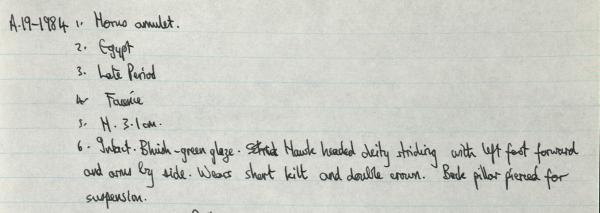 A-19-1984 1. Horus amulet.
2. Egypt
3. Late Period
4. Faience
5. H. 3.1cm.
6. Intact. Bluish-green glaze. Hawk headed deity striding with left foot forward
and arms by side. Wears short kilt and double crown. Back pillar pierced for
suspension.